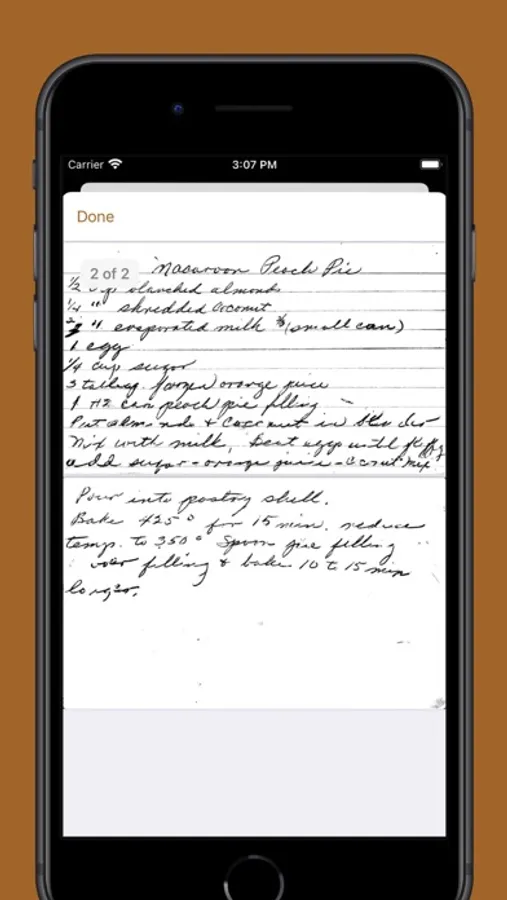 Carrier 3:07 PM
Done
2 of 2
Macaroon Peach Pie
1/2 cup blanched almonds
1/4 " shredded Coconut
" evaporated milk (small can)
1 egg
1/4 cup sugar
3 tablesp. frozen orange juice
1 #2 can peach pie filling
Put almonds & Coconut in
Mix with milk, Beat eggs until fluffy
add sugar - orange juice - Coconut mix
Pour into pastry shell.
Bake 425° for 15 min. reduce
temp. to 350° Spoon pie filling
over filling & bake 10 to 15 min
longer.